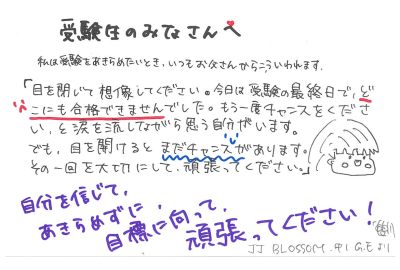 受験生のみなさんへ
私は受験をあきらめたいとき、いつもお父さんからこういわれます。
「目を閉じて想像してください。今日は受験の最終日で、ど
こにも合格できませんでした。もう一度チャンスをくださ
い、と涙を流しながら思う自分がいます。
でも、目を開けると まだチャンスがあります。
その一回を大切にして、頑張ってください。」
自分を信じて、
あきらめずに、
目標に向って、
頑張ってください！
JJ BLOSSOM. 中1 G.Eより